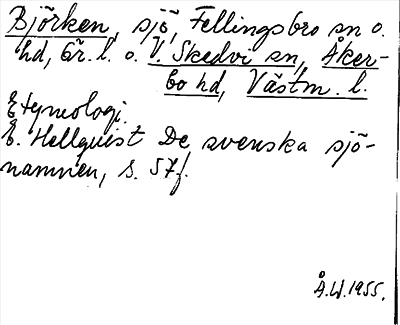 Björken, sjö, Fellingsbro sn o.
hd, Ör. l. o. V. Skedvi sn, Åker-
bo hd, Västm. l.
Etymologi.
E. Hellquist De svenska sjö-
namnen, s. 57f.
Å.W.1955.